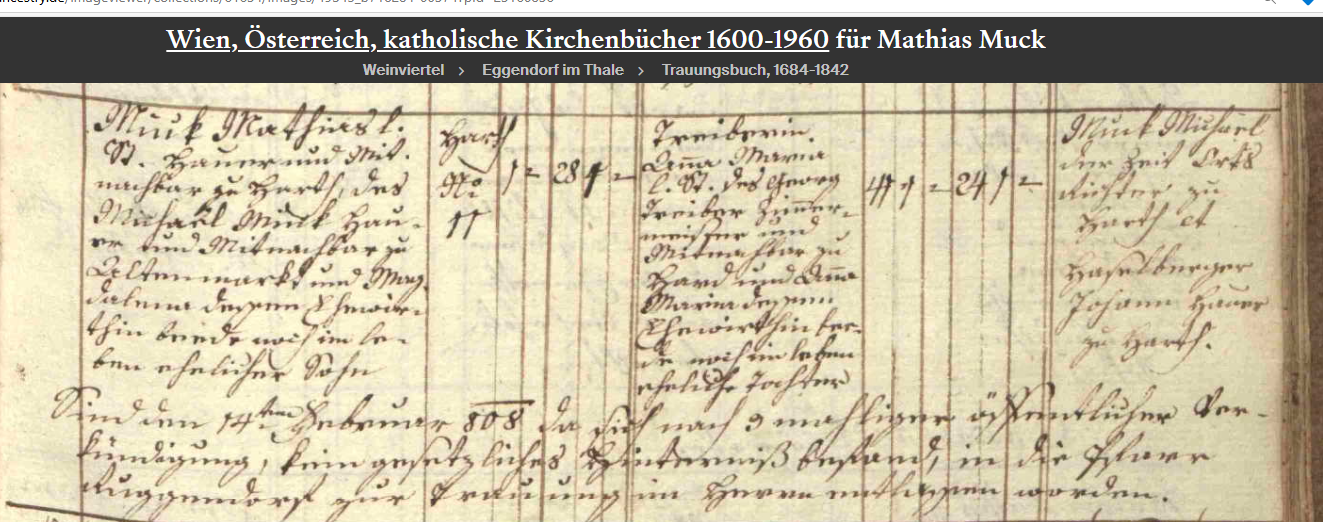 Wien, Österreich, katholische Kirchenbücher 1600-1960 für Mathias Muck
Weinviertel > Eggendorf im Thale > Trauungsbuch, 1684-1842
Muck Mathias l.
St. Hauer und Mit-
nachbar zu Harth, des
Michaël Muck Hau-
er und Mitnachbar zu
Altenmarkt und Mag-
dalena dessen Ehewir-
thin beede noch im le-
ben ehelicher Sohn
Harth
No
11
1 28 1
Treiberin
Anna Maria
l. St. des Georg
Treiber Zimmer-
meister und
Mitnachbar zu
Hard und Anna
Maria dessen
Ehewirthin bee-
de noch im leben
eheliche Tochter
1 24 1
Muck Michaël
der Zeit Orts
Richter zu
Harth et
Haselberger
Johann Hauer
zu Harth.
Sind den 14ten Februar 808 da sich nach 3 mahliger öffentlicher Ver-
kündigung, kein gesetzliches Hinterniß befand, in die Pfarr
Ruggendorf zur Trauung im Herrn entlassen worden.